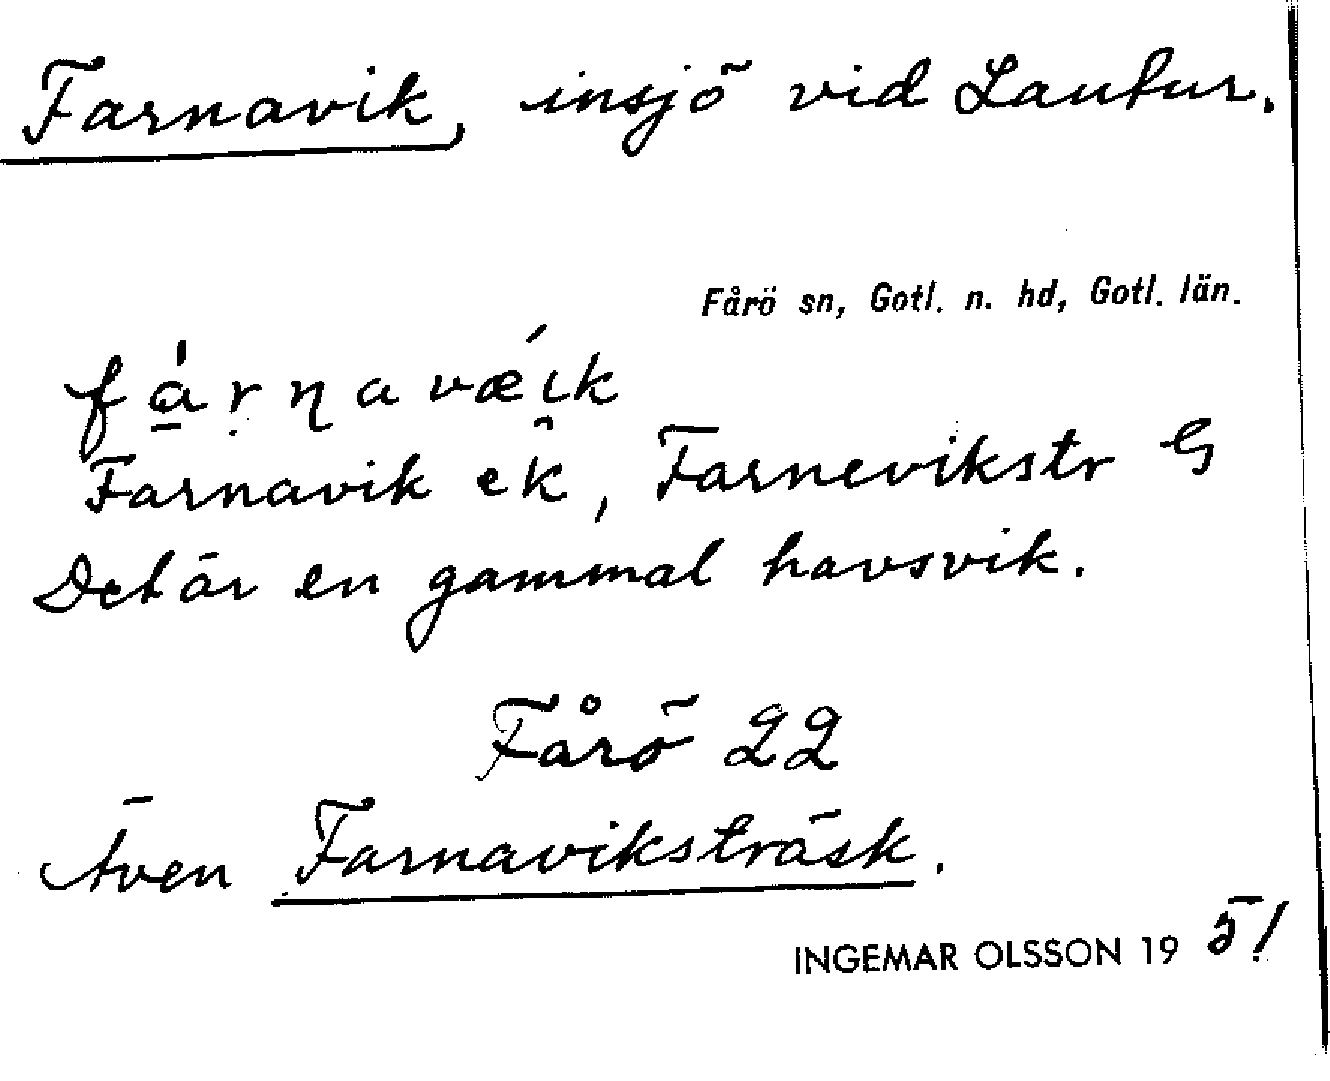 Farnavik, insjö vid Lautur.
Fårö sn, Gotl. n. hd, Gotl. län.
fa̲̍ṛɳavǽık
Farnavik ek, Farnevikstr G
Det är en gammal havsvik.
Fårö 22
Även Farnaviksträsk.
INGEMAR OLSSON 1951